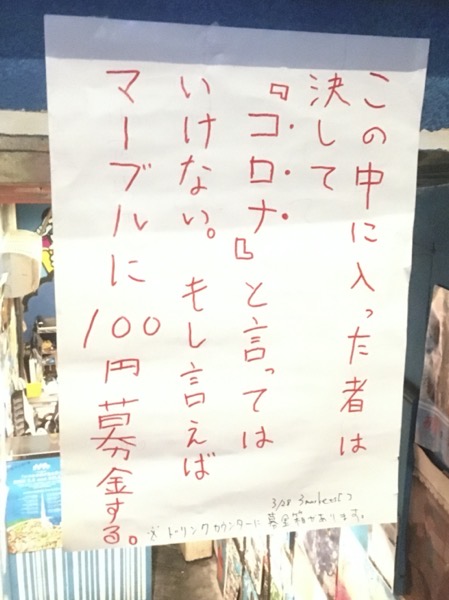 この中に入った者は
決して
『コロナ』と言っては
いけない。もし言えば
マーブルに100円募金する。
3/28
※ドリンクカウンターに募金箱があります。